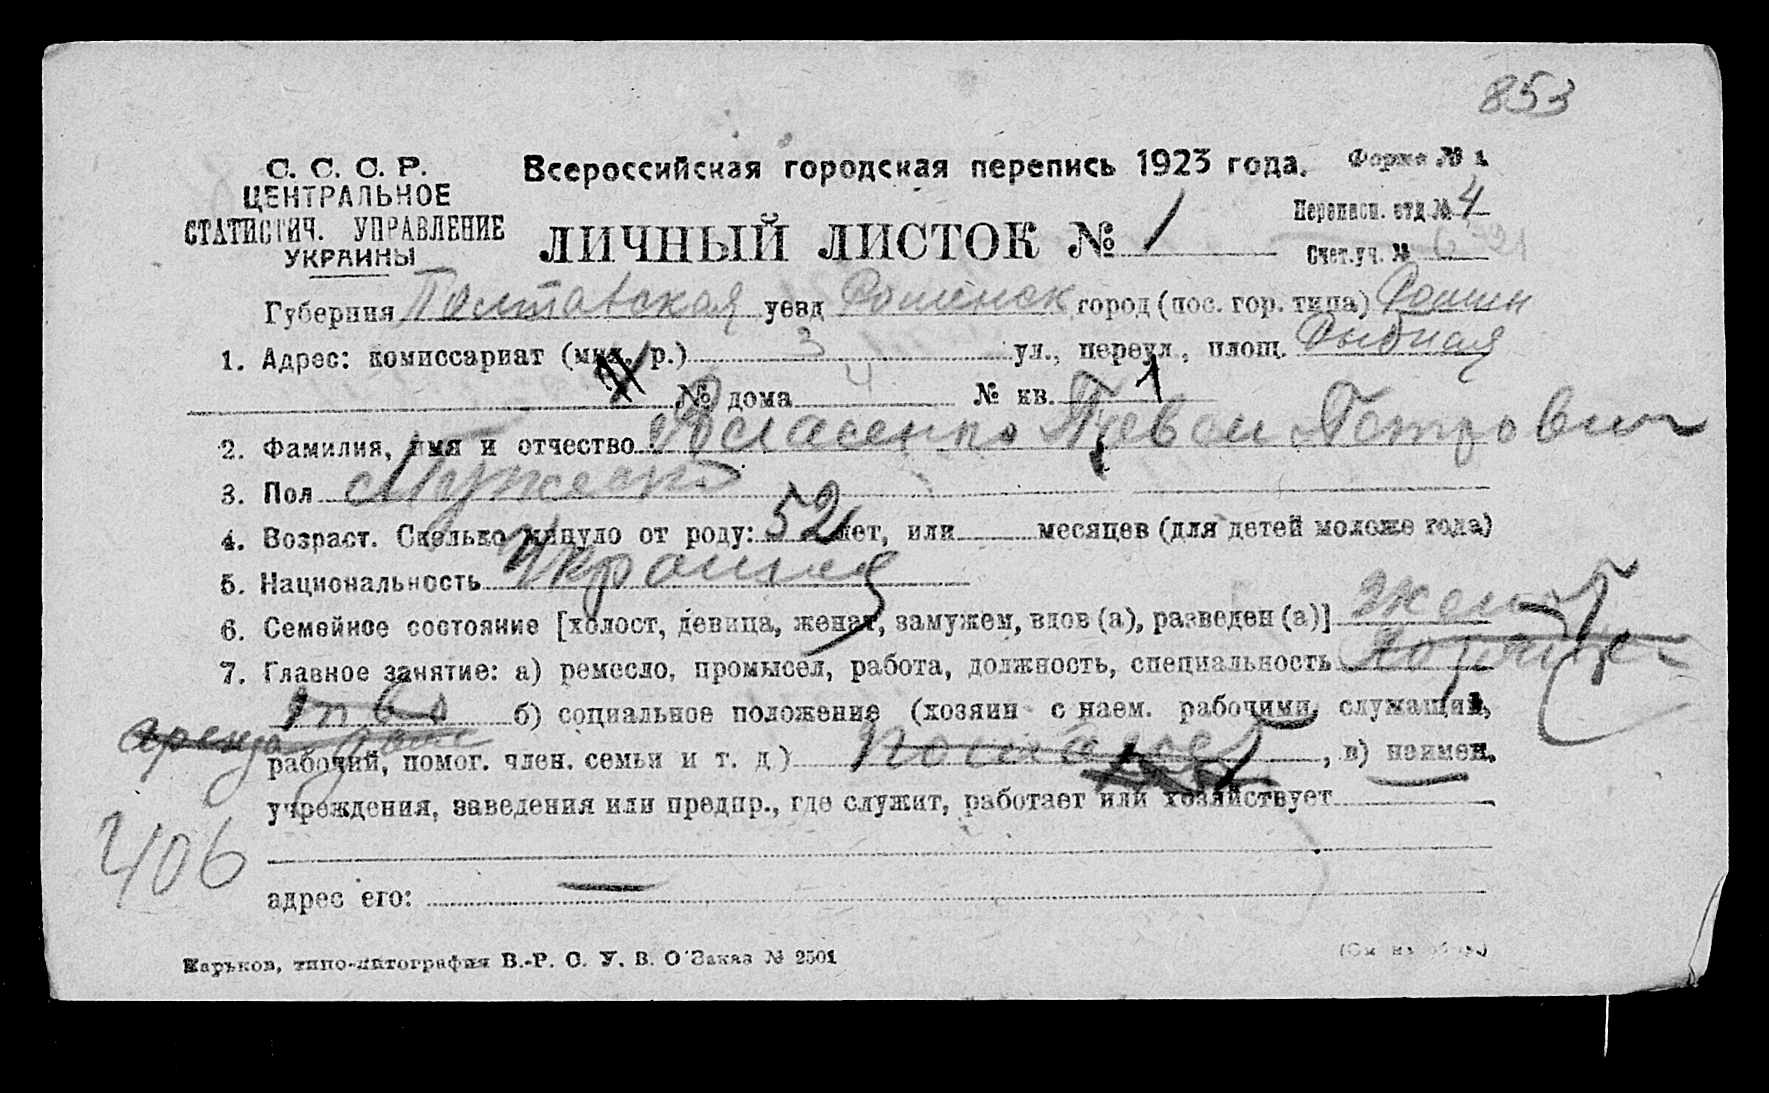 853
С. С. С. Р.
ЦЕНТРАЛЬНОЕ
СТАТИСТИЧ. УПРАВЛЕНИЕ
УКРАИНЫ
Всероссийская городская перепись 1923 года.
Форма № 1
ЛИЧНЫЙ ЛИСТОК № 1
Переписн. отд № 4
Счет.уч. № 6 21
Губерния Полтавская уезд Роменск город (пос. гор. типа) Ромны
1. Адрес: комиссариат (мил. р.) 3 ул., переул., площ. Рыбная
№ дома 4 № кв. 1
2. Фамилия, имя и отчество Павел Петрович
3. Пол Мужской
4. Возраст. Сколько минуло от роду: 52 лет, или месяцев (для детей моложе года)
5. Национальность Украинец
6. Семейное состояние [холост, девица, женат, замужем, вдов (а), разведен (а)] женат
7. Главное занятие: а) ремесло, промысел, работа, должность, специальность
б) социальное положение (хозяин с наем. рабочими, служащий,
аренда дом
рабочий, помог. член. семьи и т. д), в) наимен.
учреждения, заведения или предпр., где служит, работает или хозяйствует
406
адрес его:
Харьков, типо-литография В.-Р. С. У. В. О Заказ № 2501
(См на обор.)